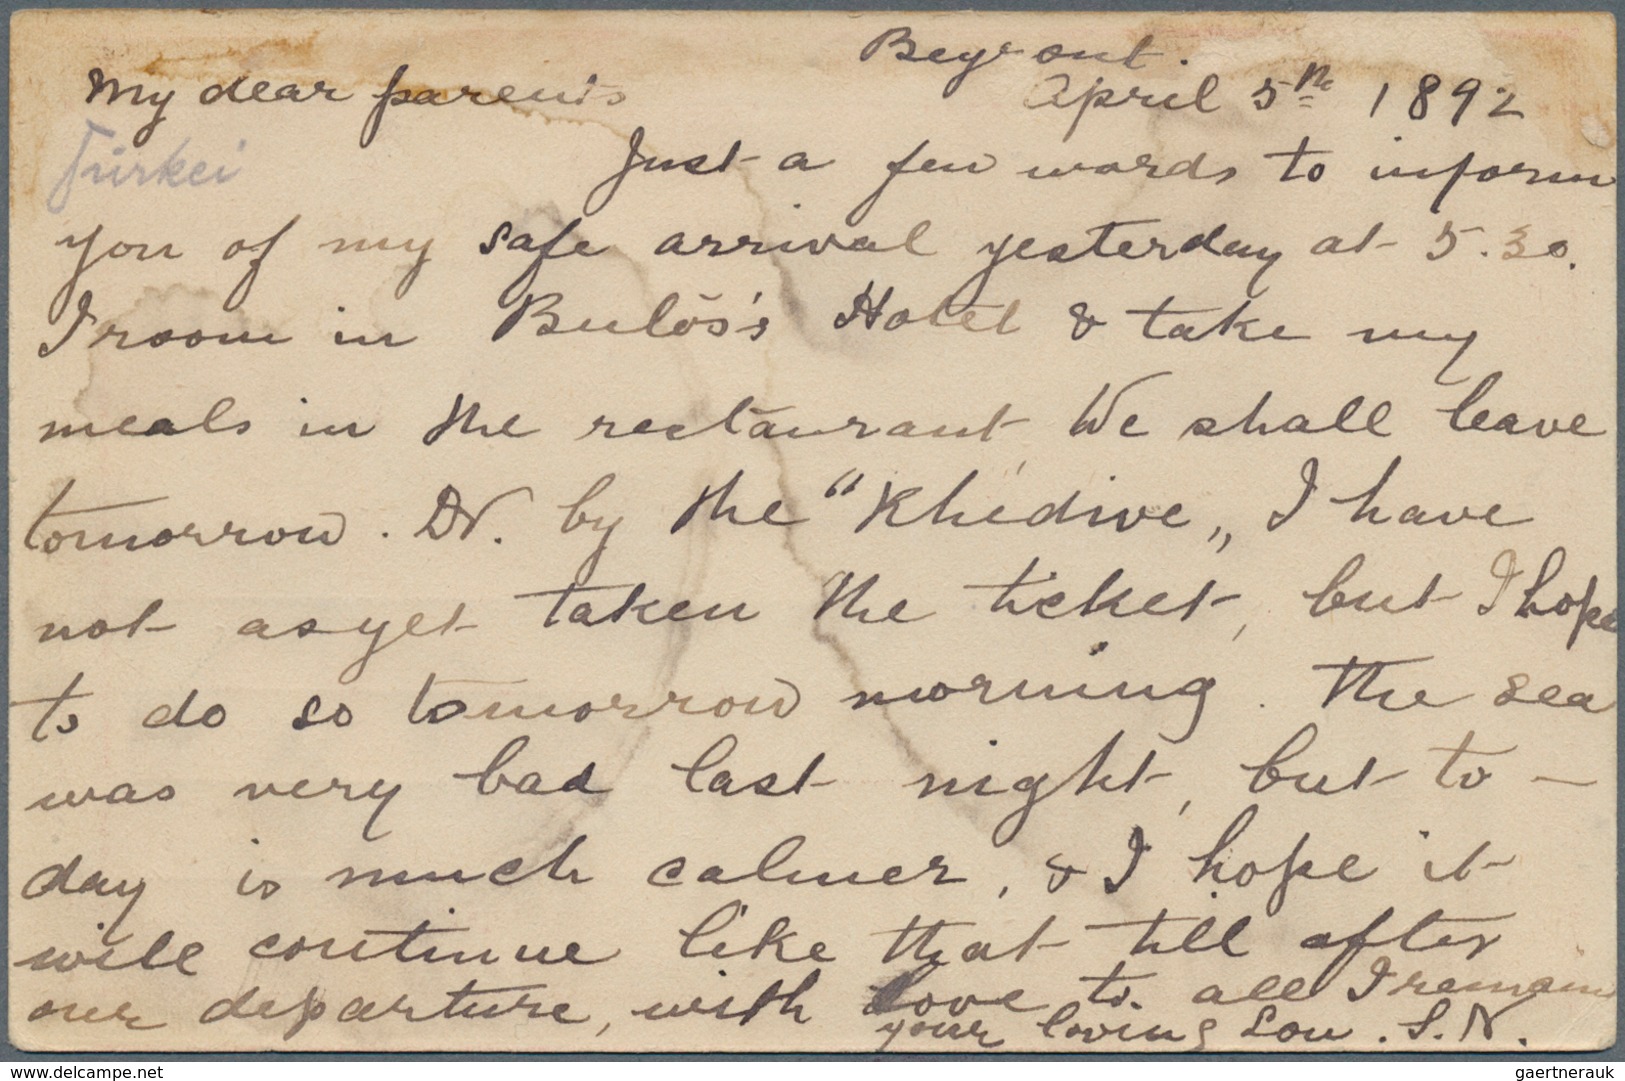 Beyrout.
My dear parents
April 5th 1892
Türkei
Just a few words to inform
you of my safe arrival yesterday at 5.30.
I room in Bulos's Hotel & take my
meals in the restaurant, We shall leave
tomorrow. DV. by the “Khedive„ I have
not as yet taken the ticket, but I hope
to do so tomorrow morning. The sea
was very bad last night, but to-
day is much calmer, & I hope it
will continue like that till after
our departure, with love to all I remain
your loving Son. S.N.
www.delcampe.net
gaertnerauk